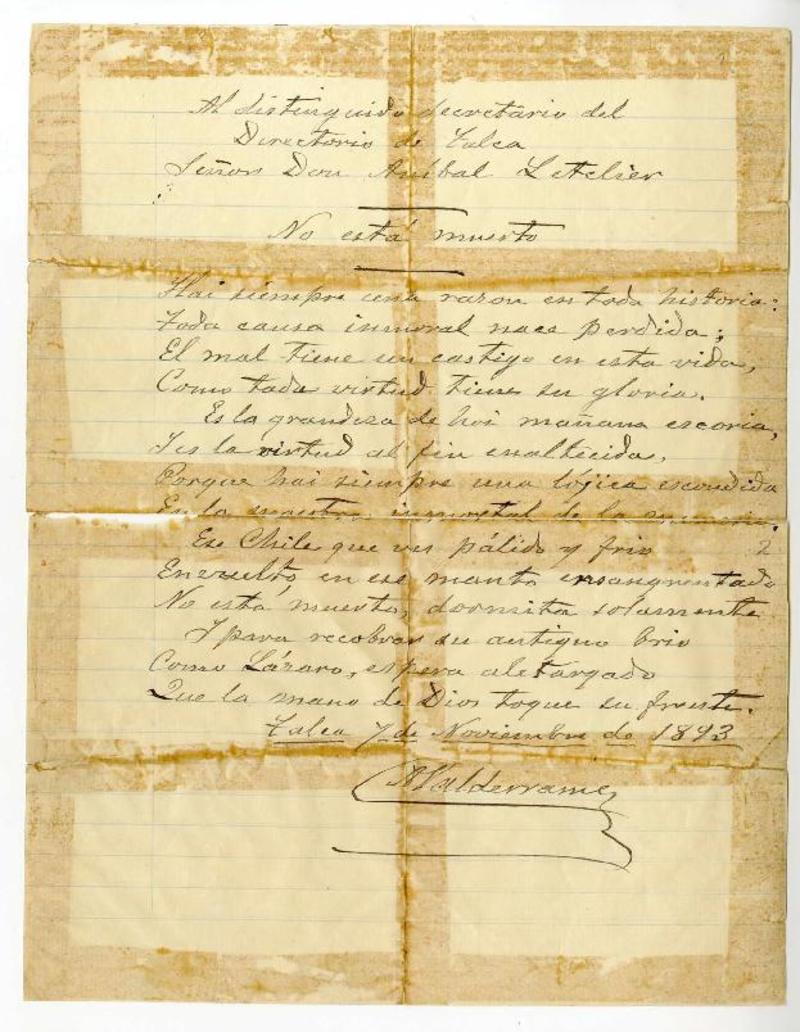 Al distinguido secretario del
Directorio de Talca
Señor Don Aníbal Letelier
No está muerto
Hai siempre una razon en toda historia:
Toda causa inmoral nace perdida;
El mal tiene un castigo en esta vida,
Como toda virtud tiene su gloria.
Es la grandeza de hoi mañana escoria,
I es la virtud al fin enaltecida,
Porque hai siempre una lójica escondida
En la inmortal de la
Ese Chile que ves pálido y frio
2
Envuelto, en ese manto ensangrentado
No está muerto, dormita solamente
I para recobrar su antiguo brio
Como Lázaro, espera aletargado
Que la mano de Dios toque su frente.
Talca 7 de Noviembre de 1893
AValderrama